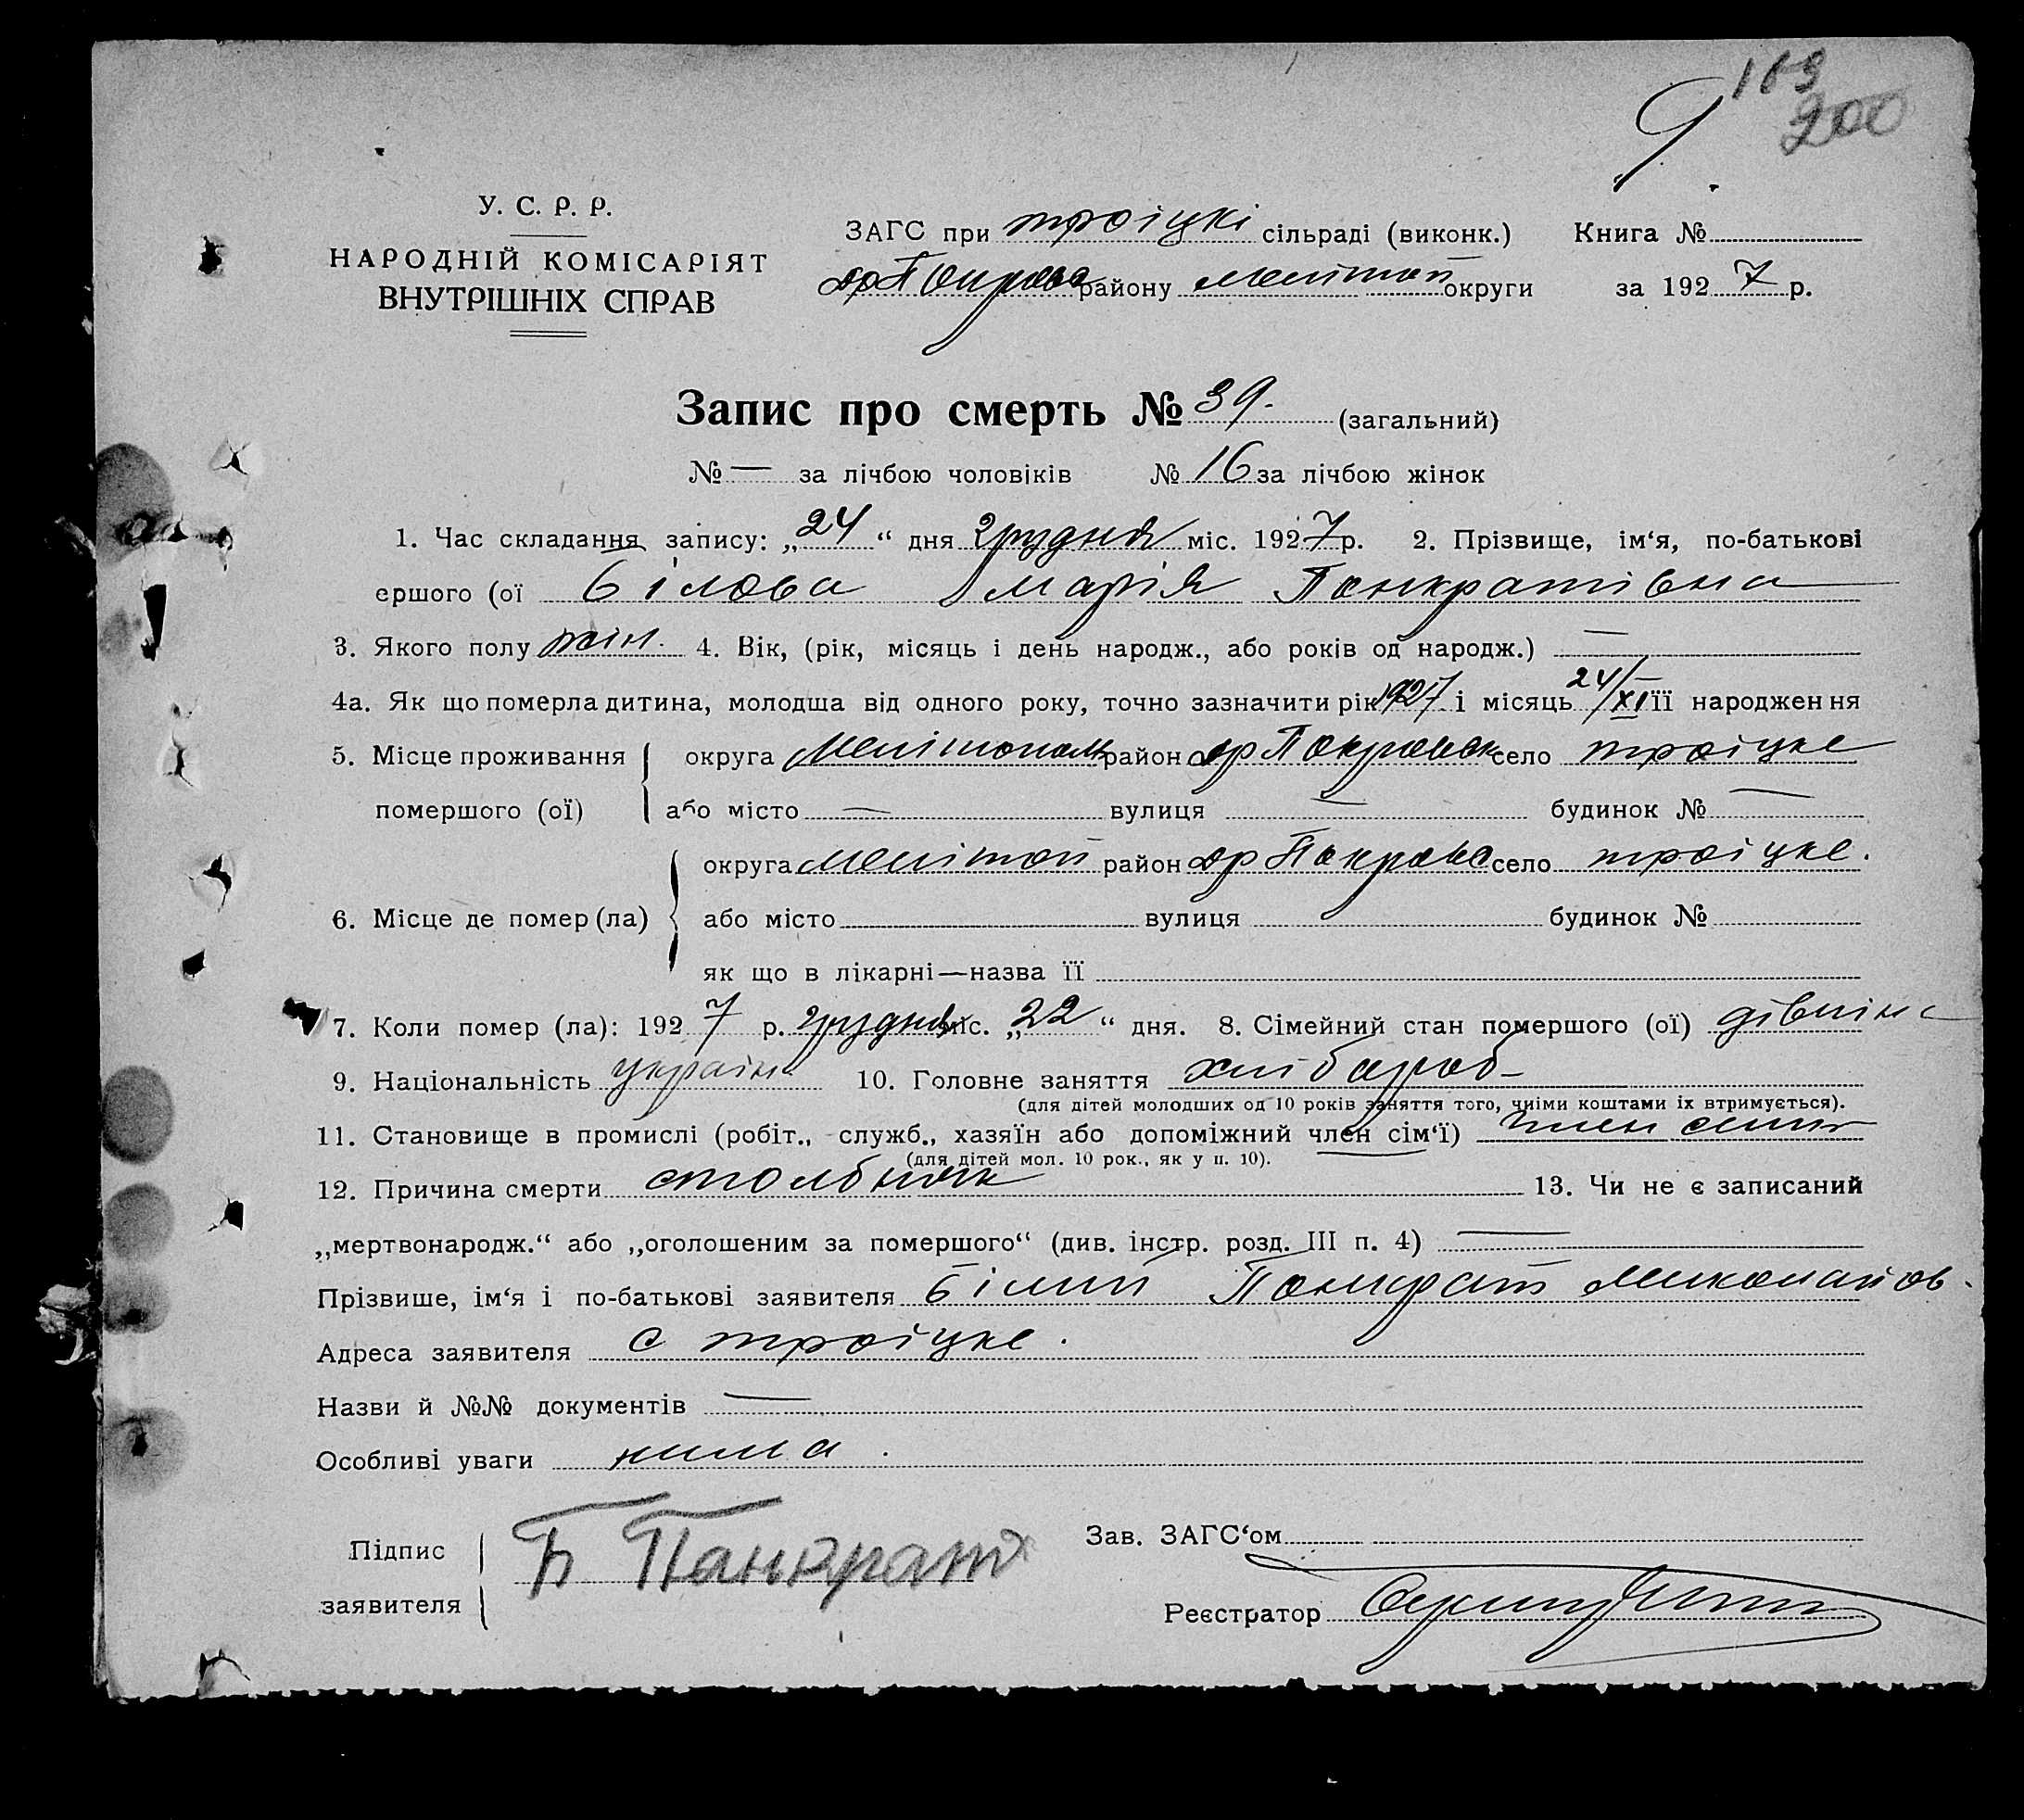 163
9 200
У. С. Р. Р.
НАРОДНІЙ КОМІСАРІЯТ
ВНУТРІШНІХ СПРАВ
ЗАГС при троїцкі сільраді (виконк.) Книга №
району меліто округи за 1927 р.
Запис про смерть № 39. (загальний)
№ — за лічбою чоловіків № 16 за лічбою жінок
1. Час складання запису: „24“ дня грудня міс. 1927 р. 2. Прізвище, ім‘я, по-батькові
ершого (ої Білова Марія Панкратівна
3. Якого полу жін. 4. Вік, (рік, місяць і день народж., або років од народж.) —
4а. Як що померла дитина, молодша від одного року, точно зазначити рік 1927 і місяць 24/XI її народження
5. Місце проживання округа Мелітопол район др Покровск село троіцке
помершого (ої) або місто — вулиця — будинок № —
округа мелітоп район др Покровс село троіцке.
6. Місце де помер (ла) або місто вулиця будинок №
як що в лікарні—назва її
7. Коли помер (ла): 1927 р. грудня міс. „22“ дня. 8. Сімейний стан помершого (ої) дівчина
9. Національність україн 10. Головне заняття хлібороб
(для дітей молодших од 10 років заняття того, чиїми коштами їх втримується).
11. Становище в промислі (робіт., служб., хазяїн або допоміжний член сім‘ї) член
(для дітей мол. 10 рок., як у п. 10).
12. Причина смерти столбняк 13. Чи не є записаний
„мертвонародж.“ або „оголошеним за помершого“ (див. інстр. розд. III п. 4) —
Прізвише, ім‘я і по-батькові заявителя Білий Панкрат Миколайов
Адреса заявителя с троіцке.
Назви й №№ документів —
Особливі уваги нима.
Підпис Б Панкрат Зав. ЗАГС‘ом
заявителя Реєстратор